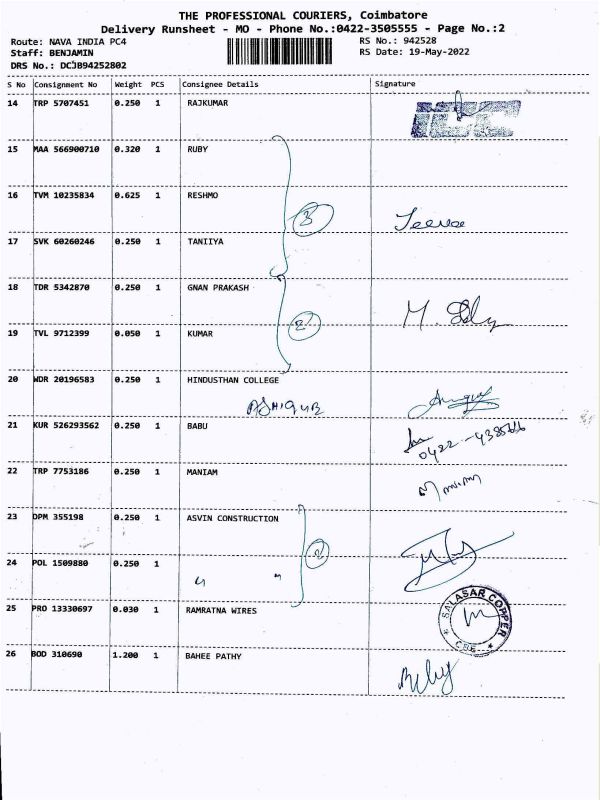 THE PROFESSIONAL COURIERS, Coimbatore
Delivery Runsheet - MO - Phone No.:0422-3505555 - Page No.:2
Route: NAVA INDIA PC4 RS No.: 942528
Staff: BENJAMIN RS Date: 19-May-2022
DRS No.: DCJB94252802
S No Consignment No Weight PCS Consignee Details Signature
14 TRP 5707451 0.250 1 RAJKUMAR
15 MAA 566900710 0.320 1 RUBY
16 TVM 10235834 0.625 1 RESHMO
3
17 SVK 60260246 0.250 1 TANIIYA
18 TDR 5342870 0.250 1 GNAN PRAKASH
2
19 TVL 9712399 0.050 1 KUMAR
20 WDR 20196583 0.250 1 HINDUSTHAN COLLEGE
ASHIQUB
21 KUR 526293562 0.250 1 BABU
22 TRP 7753186 0.250 1 MANIAM
23 DPM 355198 0.250 1 ASVIN CONSTRUCTION
2
24 POL 1509880 0.250 1
25 PRO 13330697 0.030 1 RAMRATNA WIRES
SALASAR COPPER
CBE
26 BOD 310690 1.200 1 BAHEE PATHY